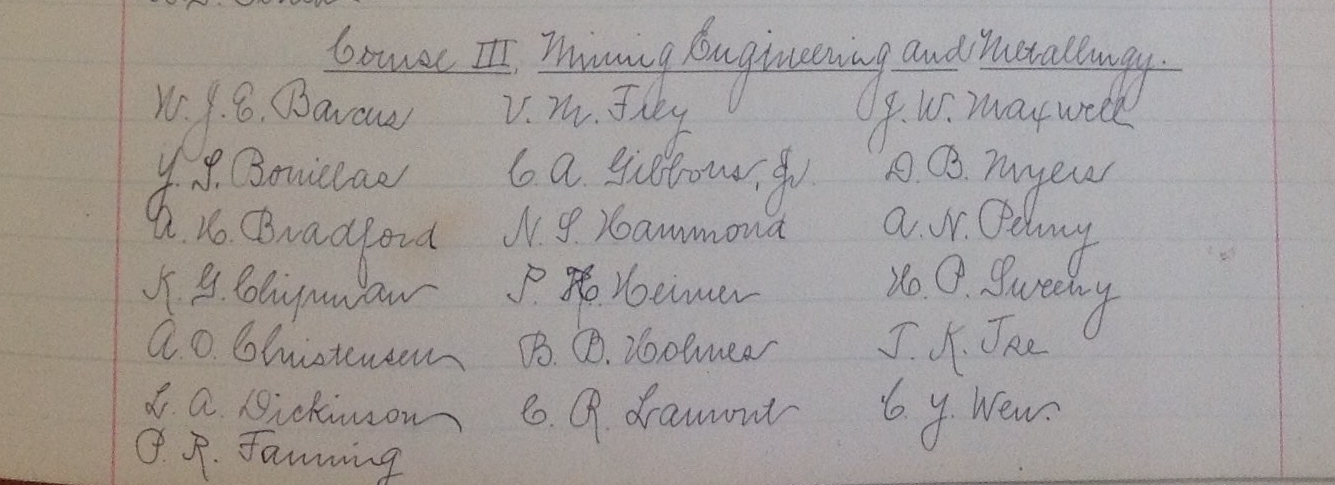 Course III, Mining Engineering and Metallurgy.
W. J. E. Barcus V. M. Frey J. W. Maxwell
Y. S. Bonillas C. A. Gibbons, Jr. D. B. Myers
A. H. Bradford N. S. Hammond A. N. Penny
K. G. Chipman P. H. Heimer H. P. Sweeny
A. O. Christensen B. B. Holmes T. K. Tse
L. A. Dickinson C. R. Lamont C. Y. Wen.
P. R. Fanning